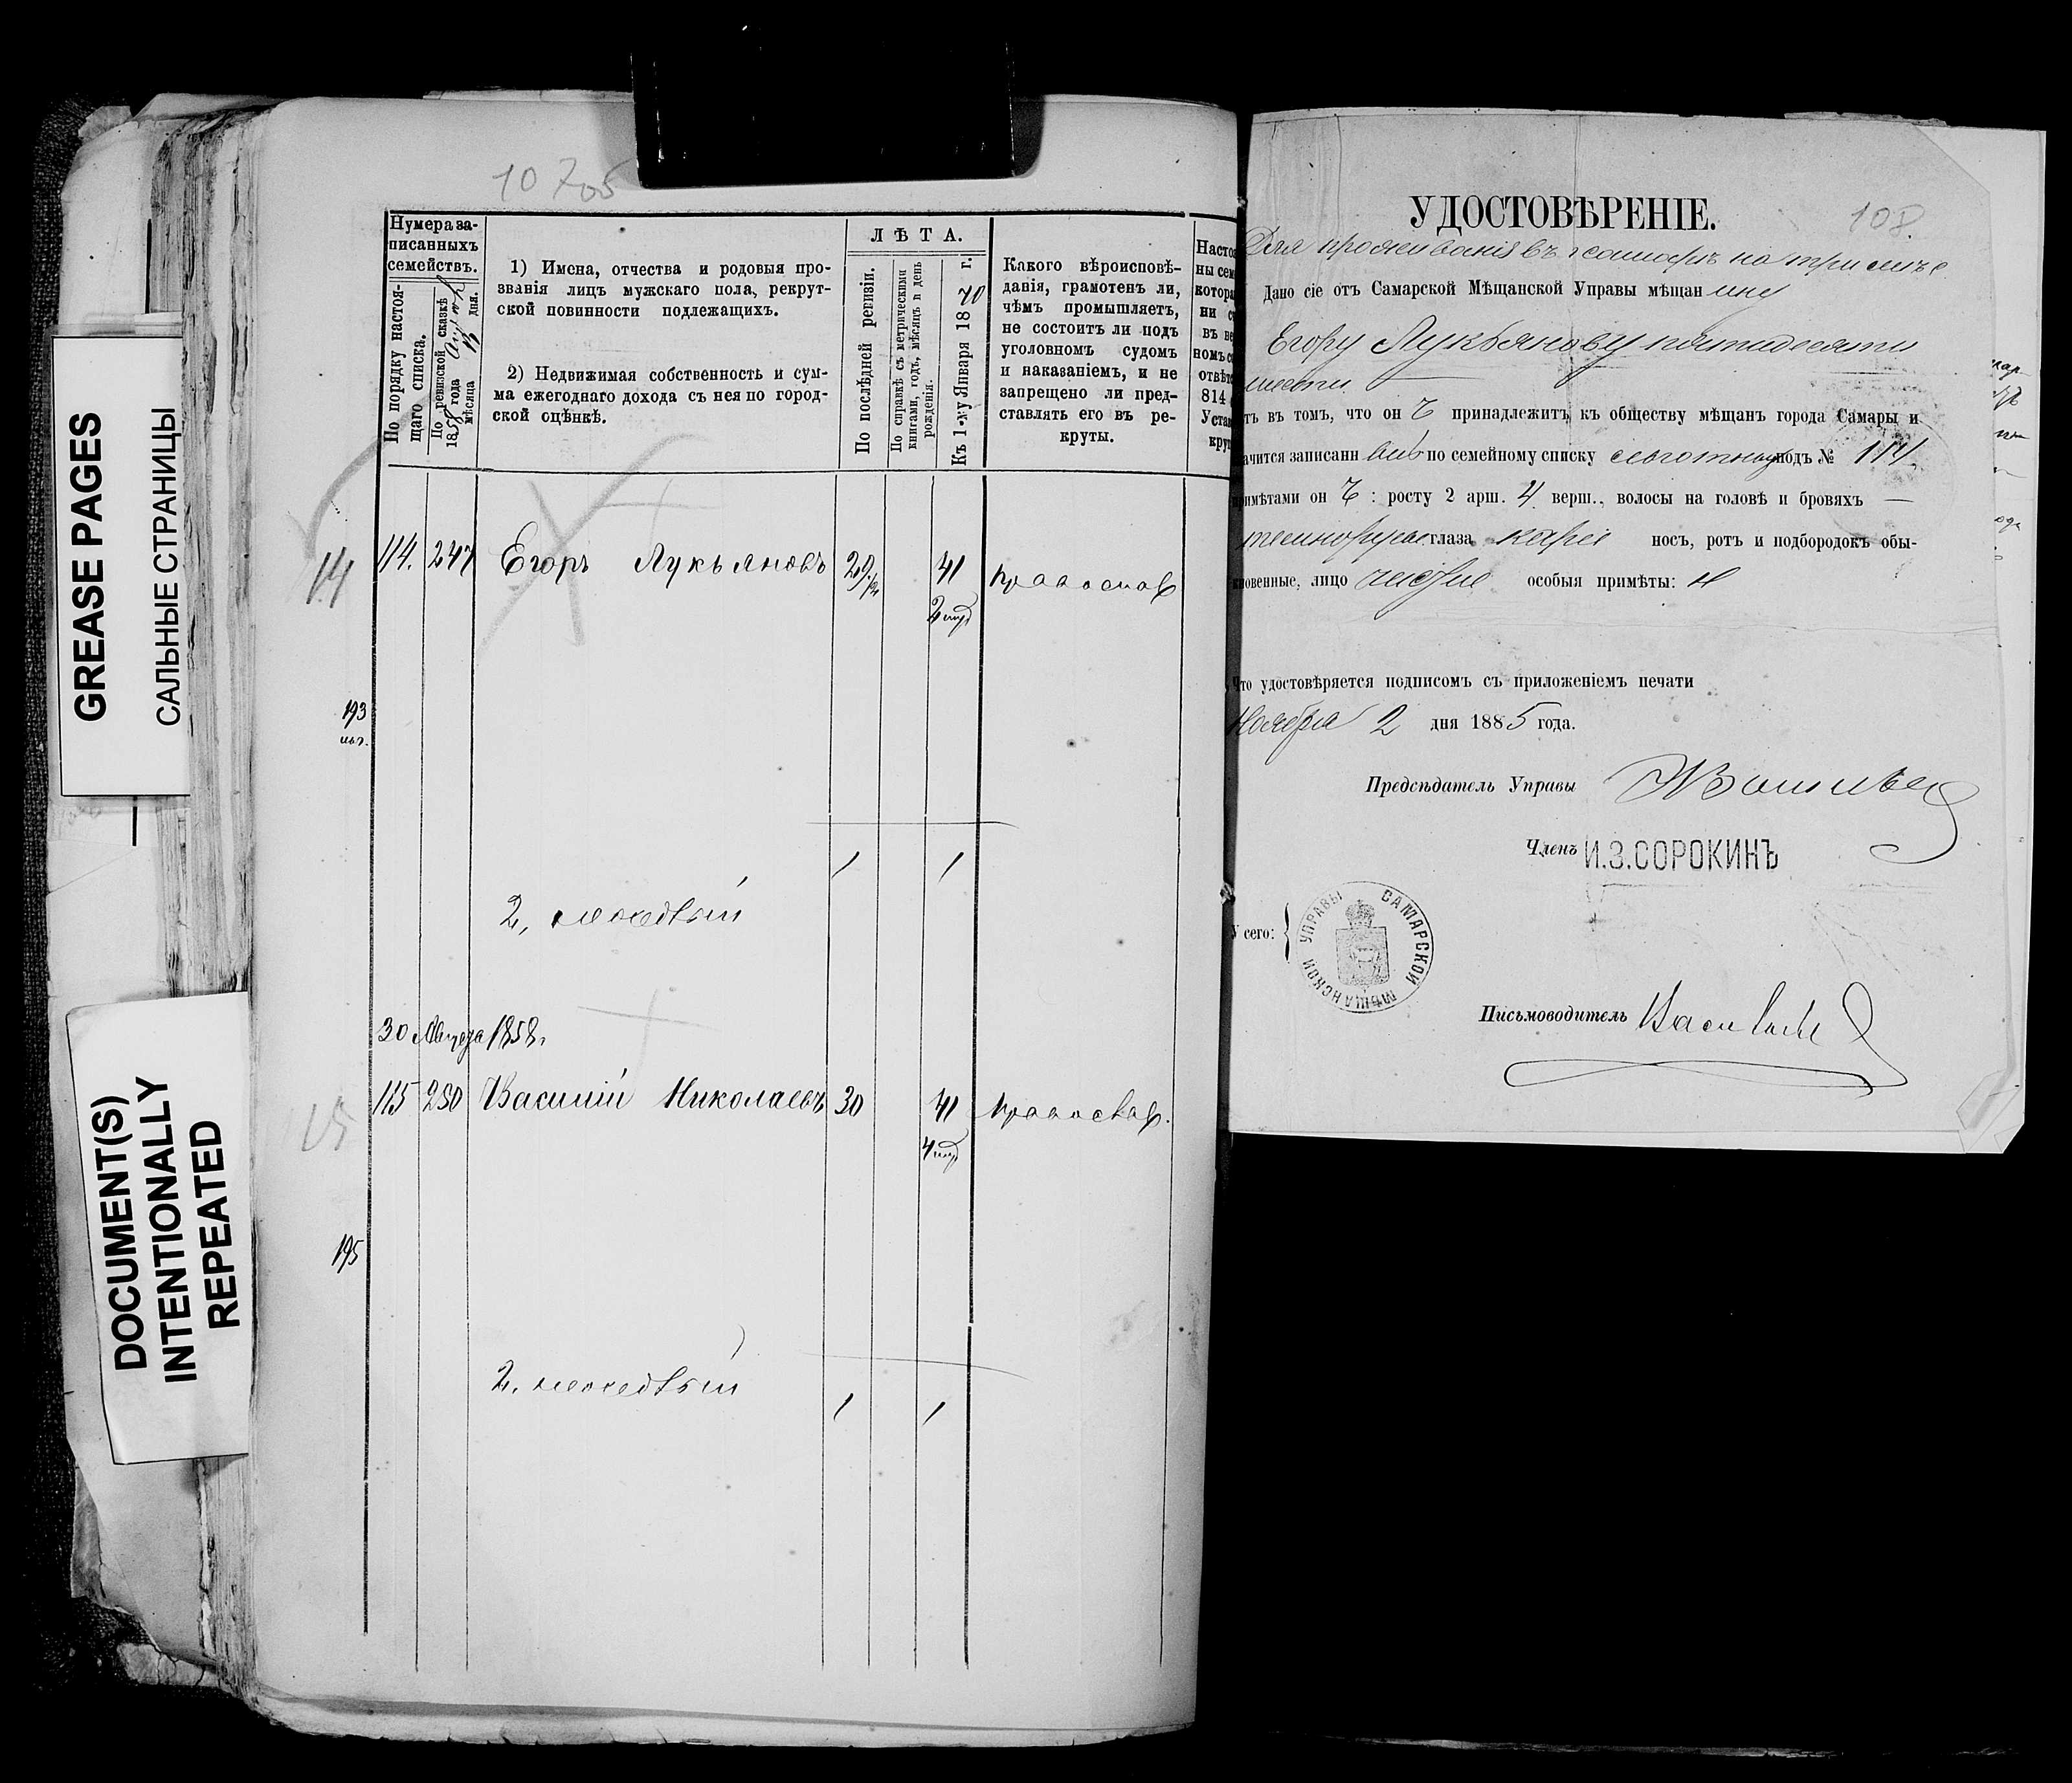 GREASE PAGES
САЛЬНЫЕ СТРАНИЦЫ
DOCUMENT(S)
INTENTIONALLY
REPEATED
10705
Нумера за-
писанныхъ
семействъ.
По порядку настоя-
щаго списка.
По ревизской сказкѣ
1858 года
мѣсяца дня.
1) Имена, отчества и родовыя про-
званія лицъ мужскаго пола, рекрут-
ской повинности подлежащихъ.
2) Недвижимая собственность и сум-
ма ежегоднаго дохода съ нея по город-
ской оцѣнкѣ.
ЛѢТА.
По послѣдней ревизіи.
По справкѣ съ метрическими
книгами, годъ, мѣсяцъ и день
рожденія.
Къ 1-му Января 1870 г.
Какого вѣроисповѣ-
данія, грамотенъ ли,
чѣмъ промышляетъ,
не состоитъ ли подъ
уголовномъ судомъ
и наказаніемъ, и не
запрещено ли пред-
ставлять его въ ре-
круты.
114. 247 Егоръ Лукьяновъ 29 41 православ
193
1 1
30 Августа 1858.
115 250 Василій Николаевъ 30 41 православ.
195
1 1
УДОСТОВѢРЕНІЕ.
108.
Для проживанія въ г Самарѣ на три мѣс
Дано сіе отъ Самарской Мѣщанской Управы мѣщанину
Егору Лукьянову пятидесяти
шести
тъ въ томъ, что онъ принадлежитъ къ обществу мѣщанъ города Самары и
ачится записаннымъ по семейному списку льготному подъ № 114
римѣтами онъ: росту 2 арш. 4 верш., волосы на головѣ и бровяхъ —
темнорусые глаза каріе носъ, ротъ и подбородокъ обы-
новенные, лицо чистое особыя примѣты: н
Что удостовѣряется подписомъ съ приложеніемъ печати
Ноября 2 дня 1885 года.
Предсѣдатель Управы
Членъ И.З.СОРОКИНЪ
У сего:
САМАРСКОЙ МѢЩАНСКОЙ УПРАВЫ
Письмоводитель